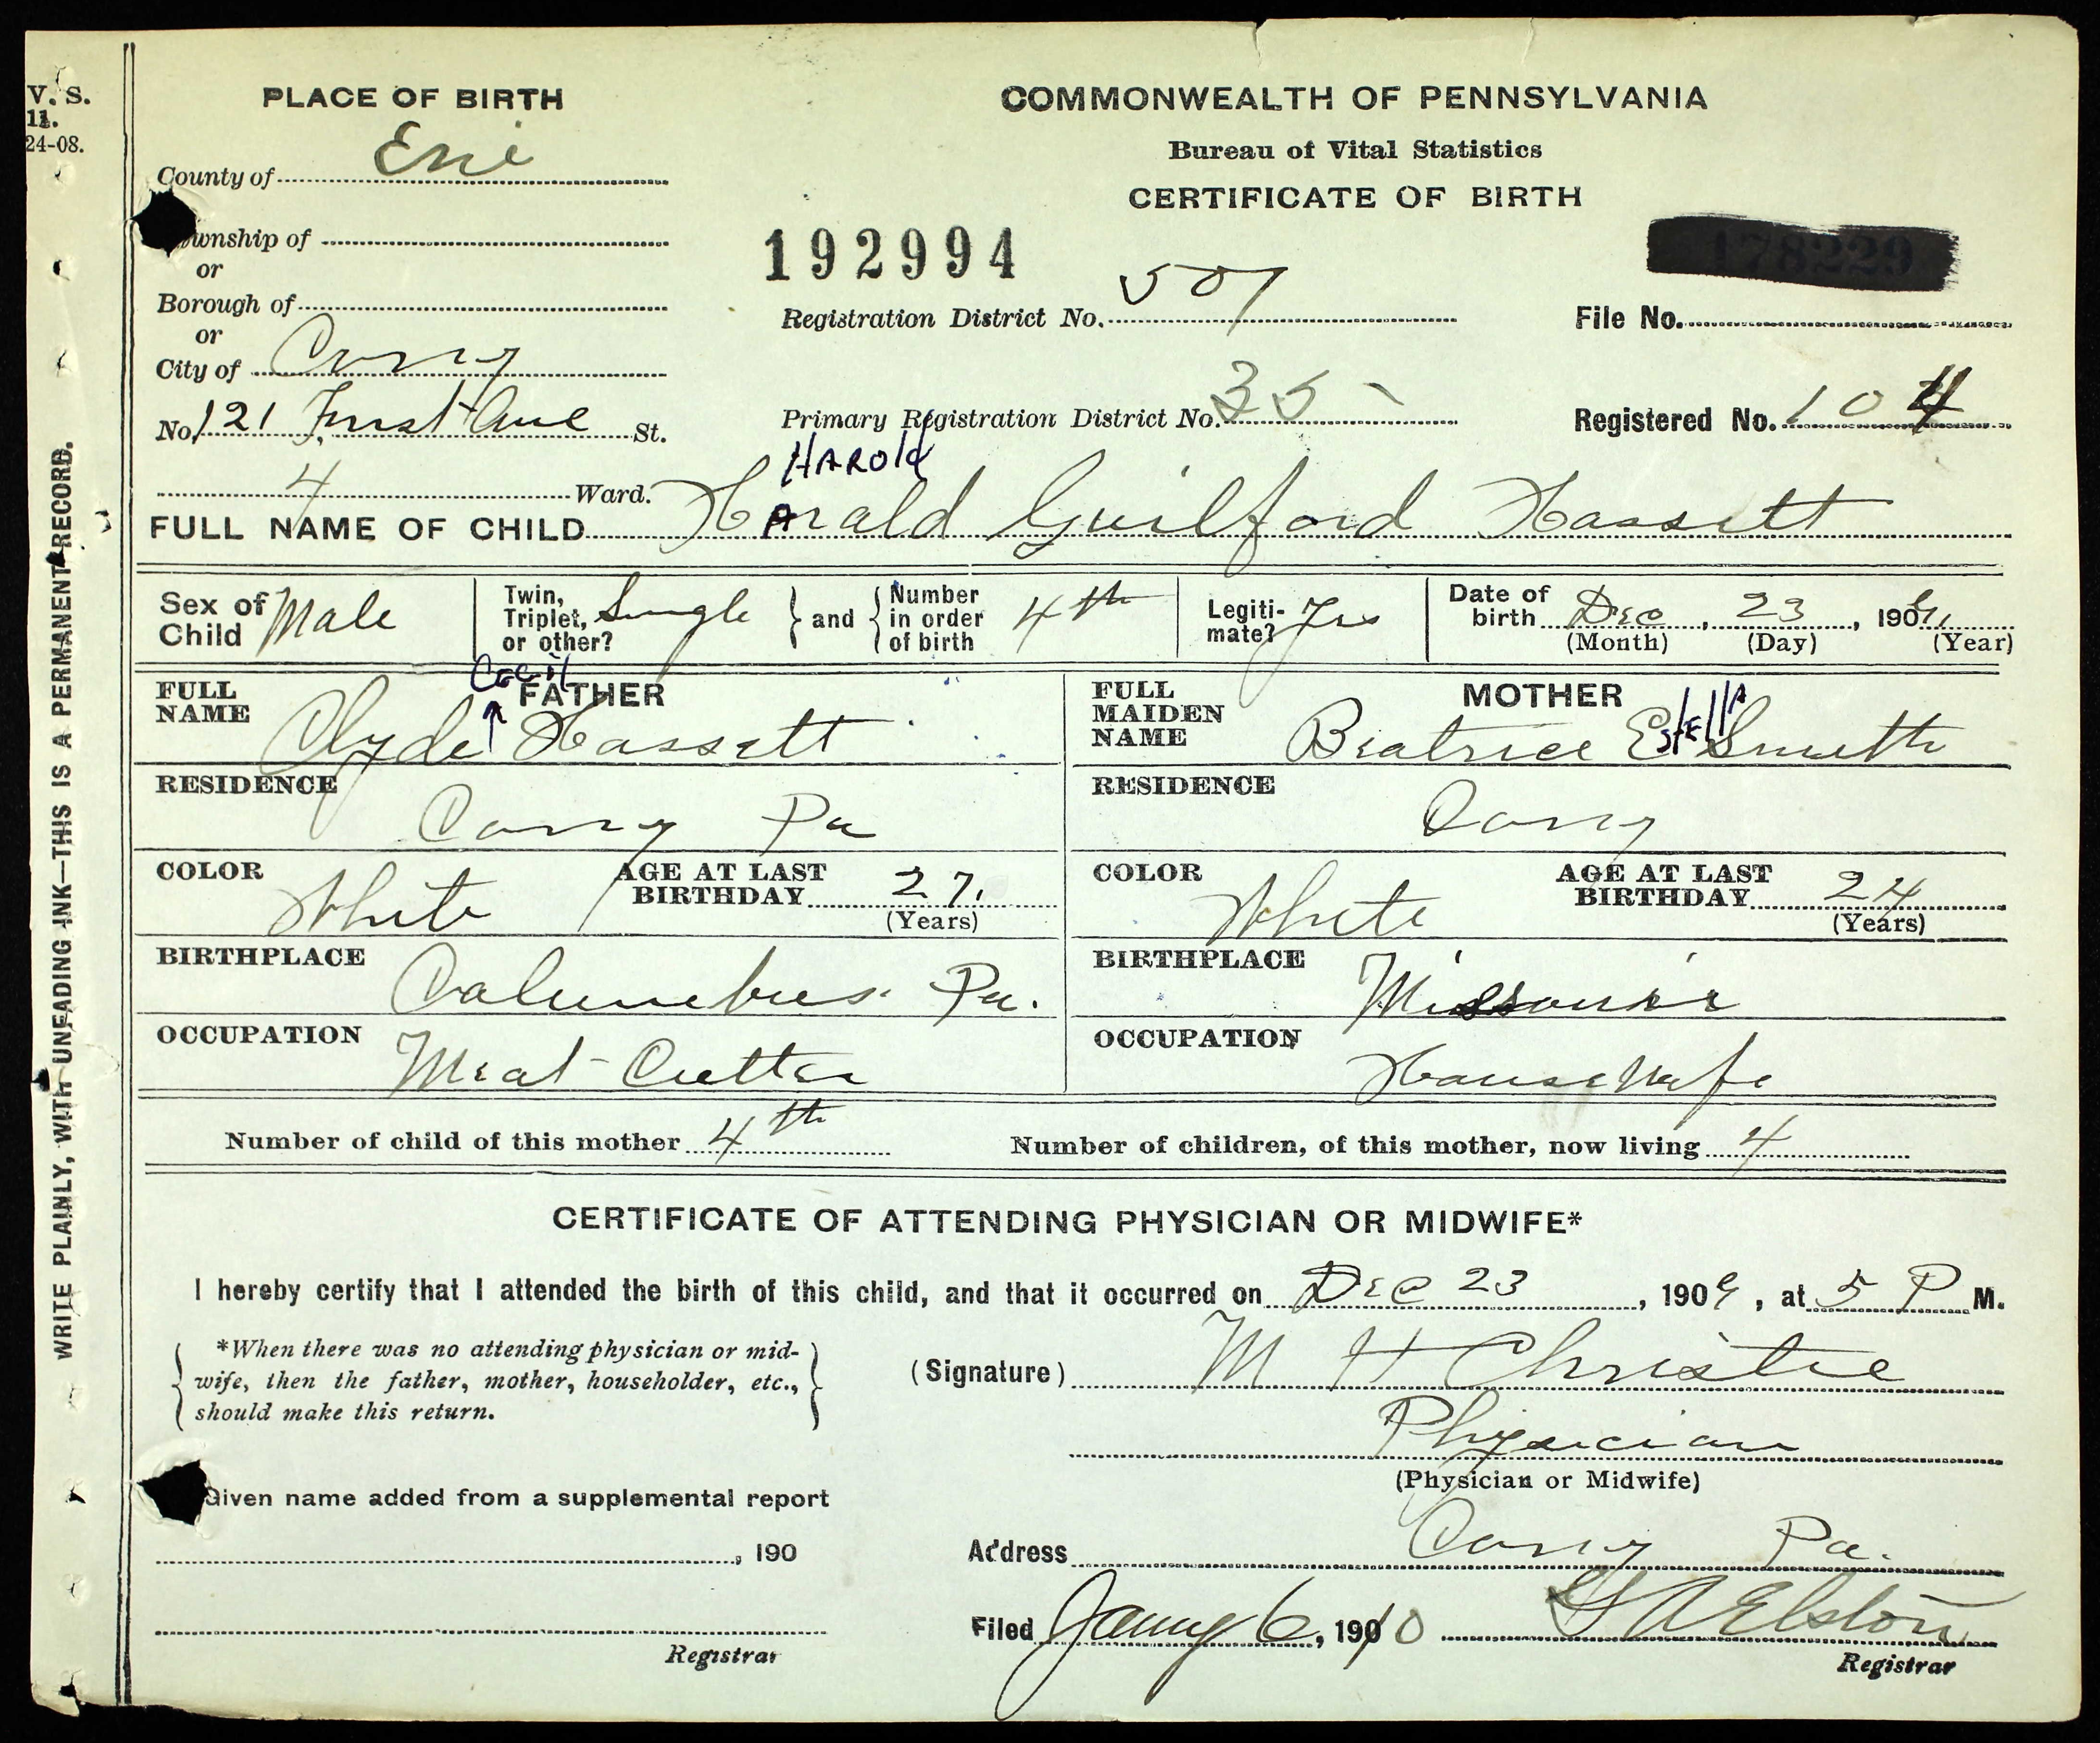 V. S.
11.
24-08.
WRITE PLAINLY, WITH UNFADING INK—THIS IS A PERMANENT RECORD.
PLACE OF BIRTH
County of Erie
ownship of
or
Borough of
or
City of Corry
No. 121 First Ave St.
4 Ward.
COMMONWEALTH OF PENNSYLVANIA
Bureau of Vital Statistics
CERTIFICATE OF BIRTH
192994
178229
Registration District No. 507
File No.
Primary Registration District No. 35
Registered No. 104
HAROld
FULL NAME OF CHILD Harald Guilford Hassett
Sex of Child Male
Twin, Triplet, or other? Single and Number in order of birth 4th
Legitimate? Yes
Date of birth Dec, 23, 1909
(Month) (Day) (Year)
FATHER
FULL NAME Clyde Cecil Hassett
RESIDENCE Corry Pa
COLOR White
AGE AT LAST BIRTHDAY 27.
(Years)
BIRTHPLACE Columbus. Pa.
OCCUPATION Meat Cutter
MOTHER
FULL MAIDEN NAME Beatrice EstEllA Smith
RESIDENCE Corry
COLOR White
AGE AT LAST BIRTHDAY 24
(Years)
BIRTHPLACE Missouri
OCCUPATION House Wife
Number of child of this mother 4th
Number of children, of this mother, now living 4
CERTIFICATE OF ATTENDING PHYSICIAN OR MIDWIFE*
I hereby certify that I attended the birth of this child, and that it occurred on Dec 23, 1909, at 5 P M.
*When there was no attending physician or mid-
wife, then the father, mother, householder, etc.,
should make this return.
(Signature) M H Christie
Physician
(Physician or Midwife)
Given name added from a supplemental report
, 190
Registrar
Address Corry Pa.
Filed Januy 6, 1910 Elston
Registrar